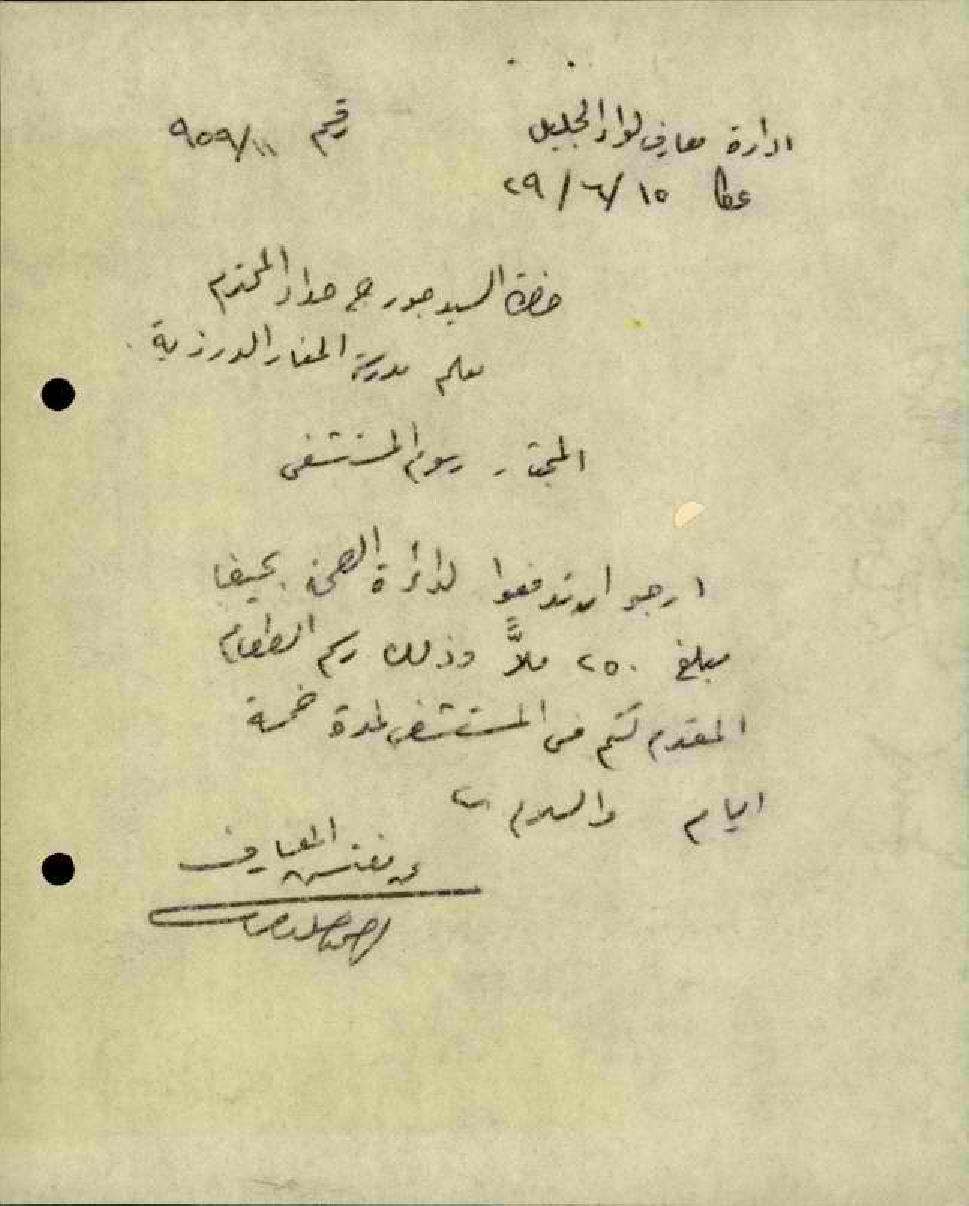 ادارة معارف لواء الجليل رقم ٩٥٩/١١
عكا ١٥/٦/٢٩
حضرة السيد جورج حداد المحترم
معلم مدرسة المغار الدرزية
المبحث - رسوم المستشفى
ارجو ان تدفعوا لدائرة الصحة بحيفا
مبلغ ٢٥٠ ملاً وذلك رسم الطعام
المقدم لكم في المستشفى لمدة خمسة
ايام والسلام
عن مفتش المعارف